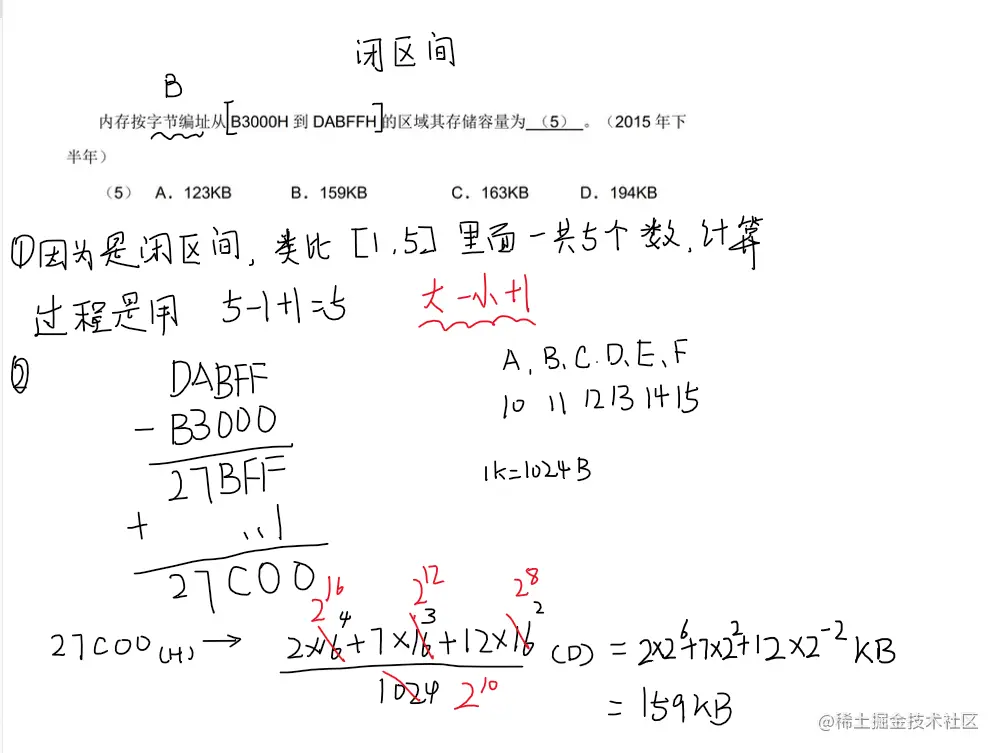 闭区间
B
内存按字节编址从[B3000H 到 DABFFH]的区域其存储容量为 （5） 。（2015 年下
半年）
（5） A．123KB B．159KB C．163KB D．194KB
①因为是闭区间, 类比 [1,5] 里面一共5个数,计算
过程是用 5-1+1=5 大-小+1
②
DABFF
- B3000
27BFF
+ ...1
27C00
A、B、C.D、E、F
10 11 12 13 14 15
1K=1024B
2^16 2^12 2^8
27C00(H) → 2×16^4+7×16^3+12×16^2 (D) = 2×2^6+7×2^2+12×2^-2 KB
1024 2^10
= 159KB
@稀土掘金技术社区